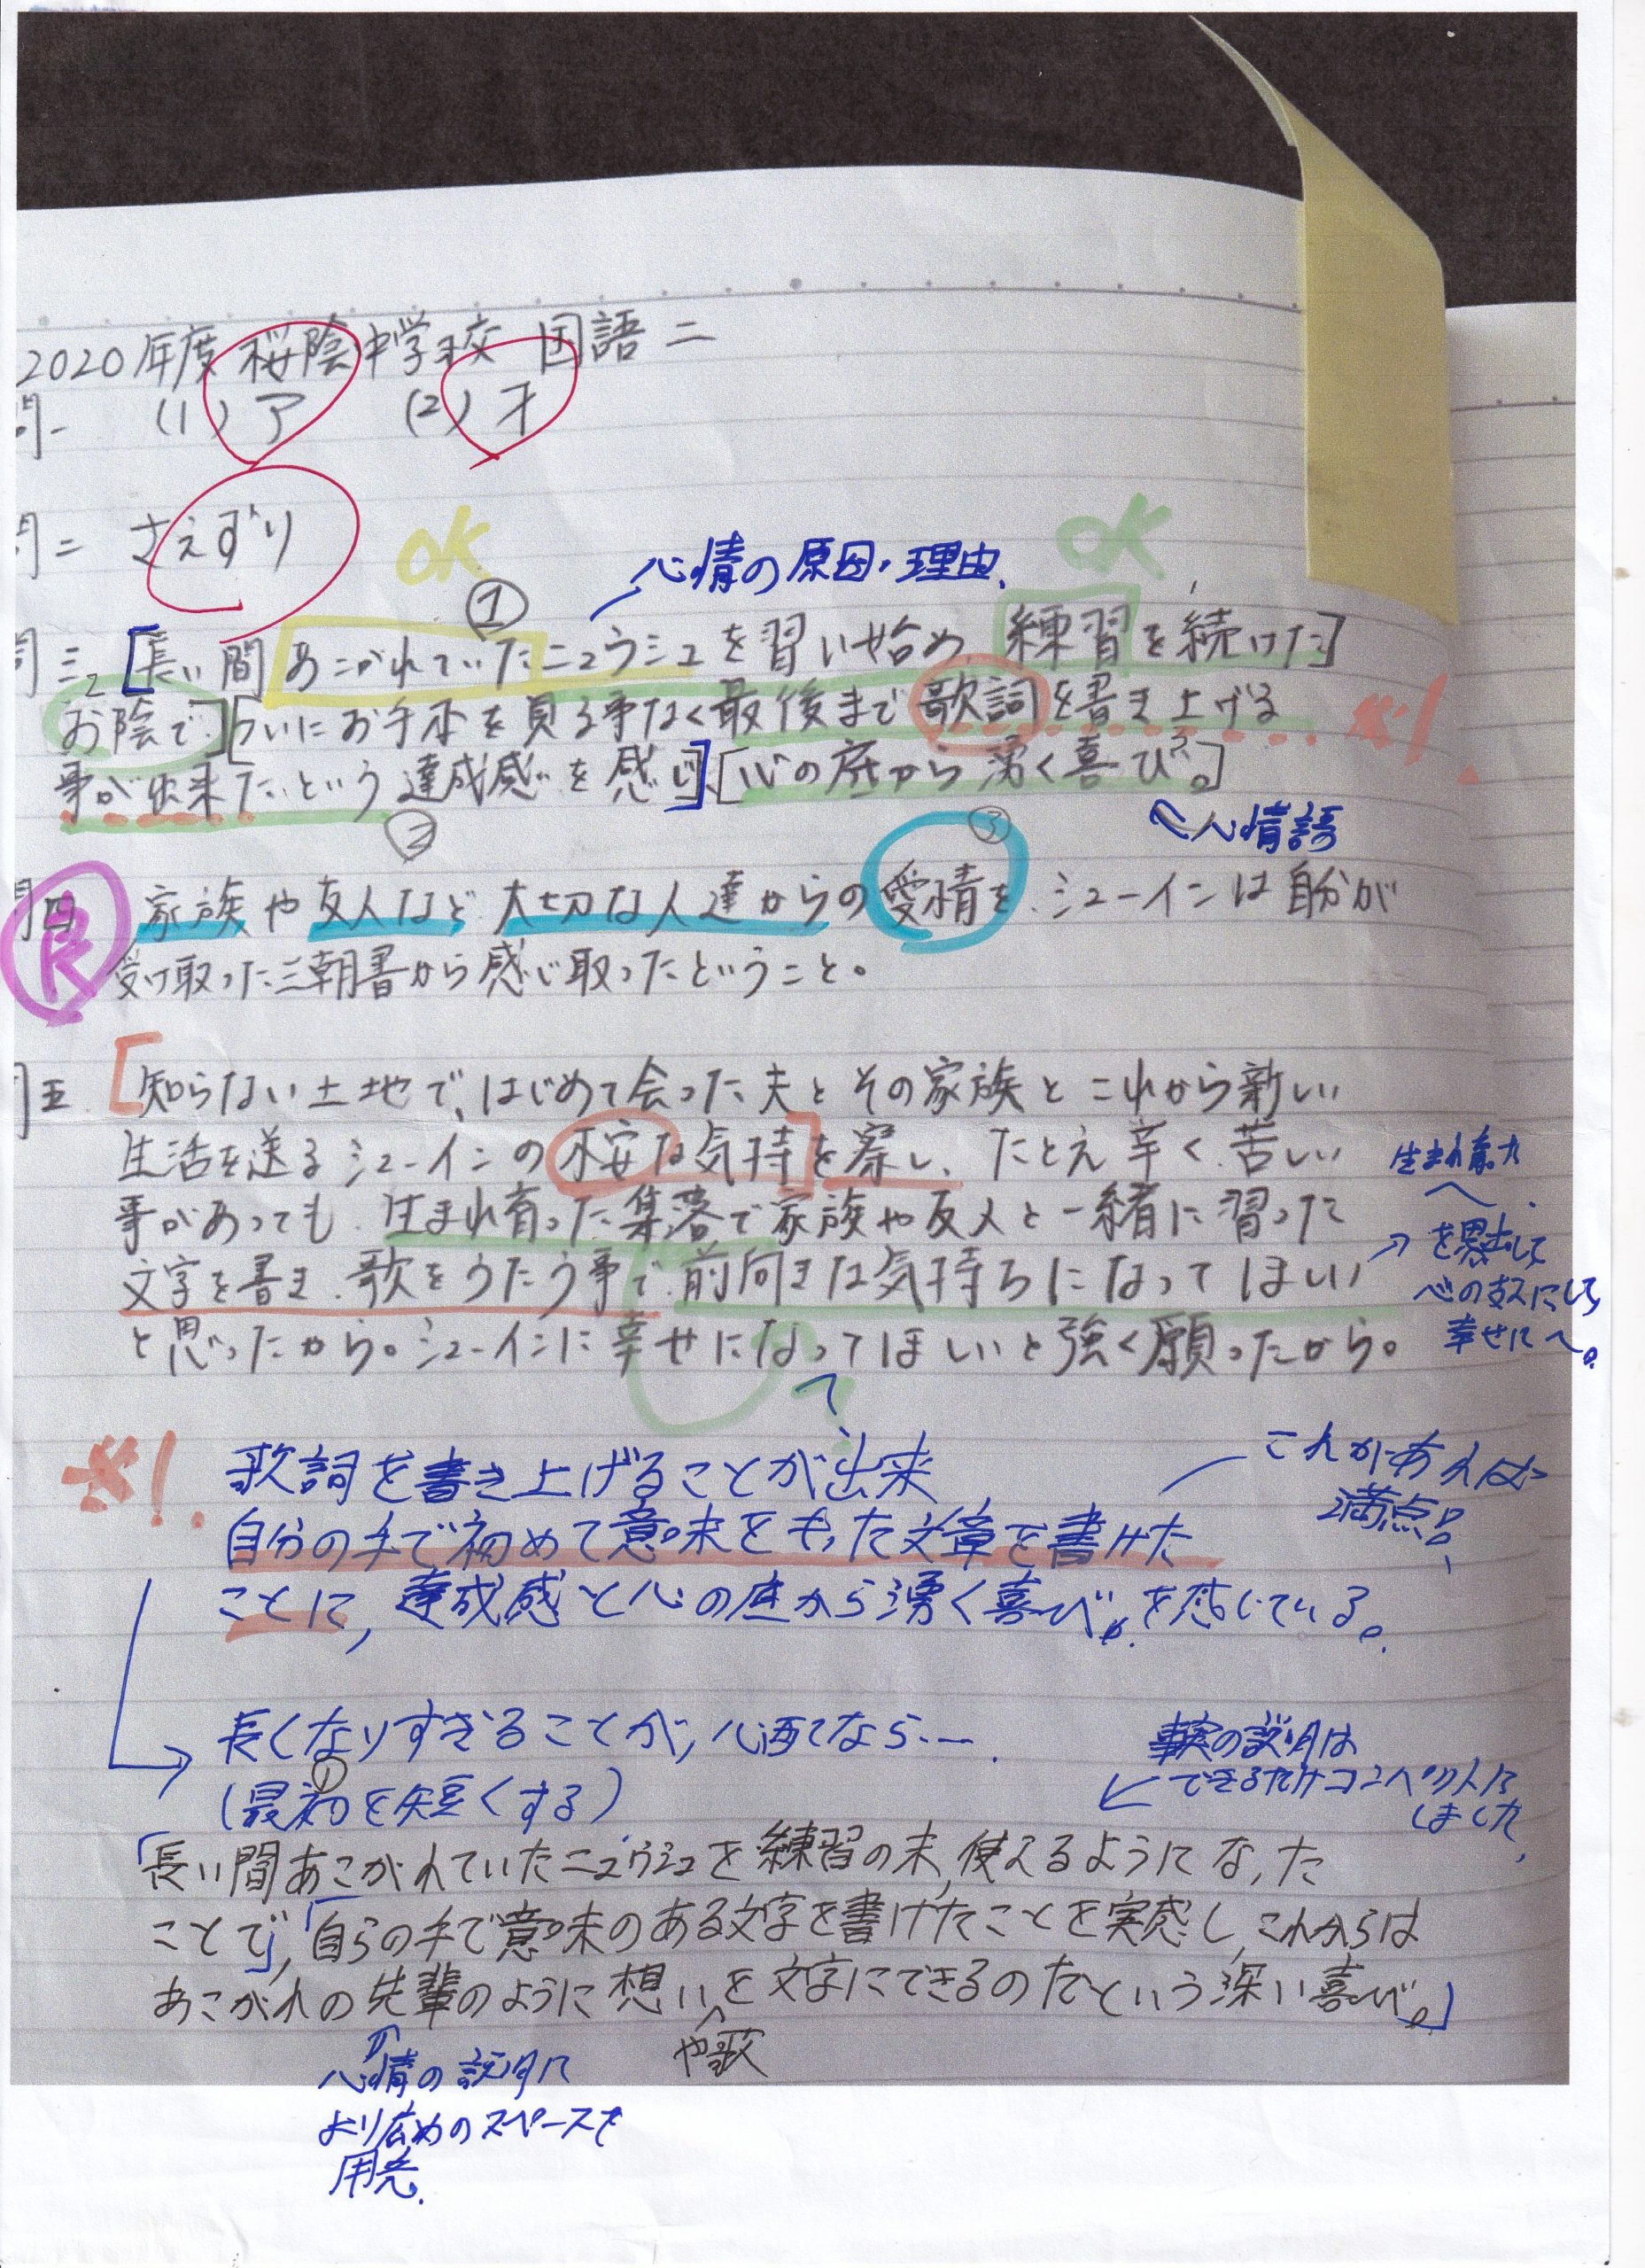 2020年度 桜陰中学校 国語 二
問一 (1) ア (2) オ
問二 さえずり
OK
OK
心情の原因・理由
①
問三 [長い間あこがれていたニュウシュを習い始め、練習を続けた]
お陰で][ついにお手本を見る事なく最後まで歌詞を書き上げる
※1.
事が出来たという達成感を感じ][心の底から湧く喜び。]
②
心情語
③
問四 家族や友人など大切な人達からの愛情を、シューインは自分が
良
受け取った三朝書から感じ取ったということ。
問五 [知らない土地で、はじめて会った夫とその家族とこれから新しい
生活を送るシューインの不安な気持を察し、たとえ辛く苦しい
事があっても、生まれ育った集落で家族や友人と一緒に習った
文字を書き、歌をうたう事で、前向きな気持ちになってほしい
と思ったから。シューインに幸せになってほしいと強く願ったから。
生まれ育った
を思い出して
心の支えにして
幸せに〜。
※1. 歌詞を書き上げることが出来
自分の手で初めて意味をもった文章を書けた
ことに, 達成感と心の底から湧く喜び。を感じている。
これがあれば
満点!!
長くなりすぎることが, 心配なら….
(最初を短くする)
①
事実の説明は
できるだけコンパクトに
しました,
「長い間あこがれていたニュウシュを練習の末, 使えるようになった
ことで」,「自らの手で意味のある文字を書けたことを実感し, これからは
あこがれの先輩のように想いを文字にできるのだという深い喜び。」
や歌
心情の説明に
より広めのスペースを
用意.